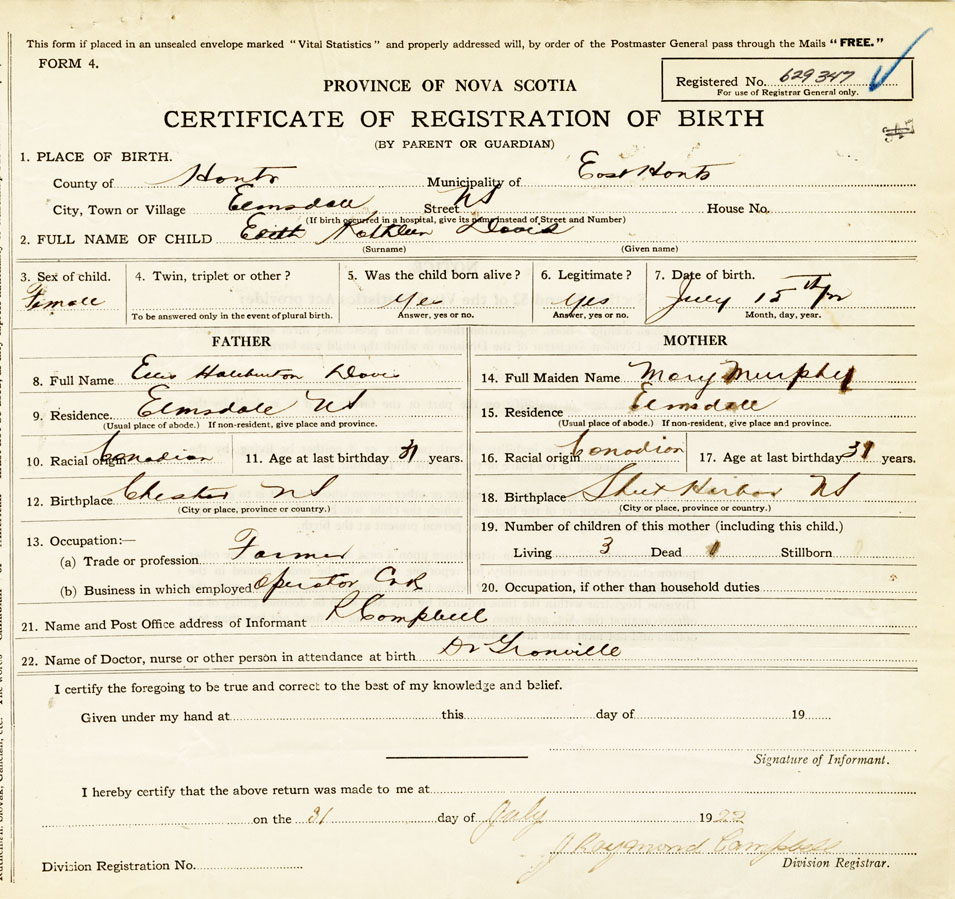 This form if placed in an unsealed envelope marked "Vital Statistics" and properly addressed will, by order of the Postmaster General pass through the Mails "FREE."
FORM 4.
Registered No. 629347
For use of Registrar General only.
PROVINCE OF NOVA SCOTIA
CERTIFICATE OF REGISTRATION OF BIRTH
(BY PARENT OR GUARDIAN)
1. PLACE OF BIRTH.
County of Hants Municipality of East Hants
City, Town or Village Elmsdale Street NS House No.
(If birth occurred in a hospital, give its name instead of Street and Number)
2. FULL NAME OF CHILD Edith Kathleen Davis
(Surname) (Given name)
3. Sex of child. 4. Twin, triplet or other? 5. Was the child born alive? 6. Legitimate? 7. Date of birth.
Female Yes Yes July 15th
To be answered only in the event of plural birth. Answer, yes or no. Answer, yes or no. Month, day, year.
FATHER MOTHER
8. Full Name Haliburton Davis 14. Full Maiden Name Mary Murphy
9. Residence. Elmsdale NS 15. Residence Elmsdale
(Usual place of abode.) If non-resident, give place and province. (Usual place of abode.) If non-resident, give place and province.
10. Racial origin Canadian 11. Age at last birthday 31 years. 16. Racial origin Canadian 17. Age at last birthday 31 years.
12. Birthplace Chester NS 18. Birthplace Sheet Harbor NS
(City or place, province or country.) (City or place, province or country.)
13. Occupation:— 19. Number of children of this mother (including this child.)
(a) Trade or profession Farmer Living 3 Dead 1 Stillborn
(b) Business in which employed Operator 20. Occupation, if other than household duties
21. Name and Post Office address of Informant R Campbell
22. Name of Doctor, nurse or other person in attendance at birth Dr Granville
I certify the foregoing to be true and correct to the best of my knowledge and belief.
Given under my hand at this day of 19
Signature of Informant.
I hereby certify that the above return was made to me at
on the 31 day of July 1922
J Raymond Campbell
Division Registration No. Division Registrar.